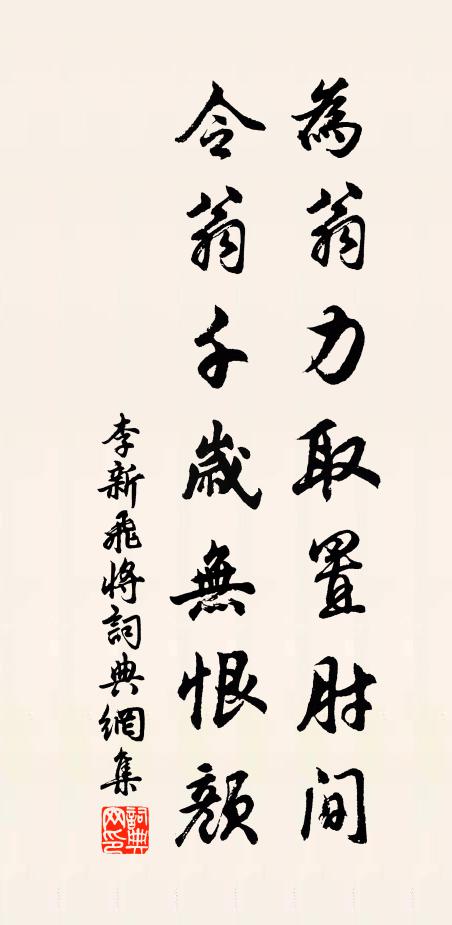 為翁力取置肘間
令翁千歲無恨顏
李新飛將詞典網集
詞典
网印